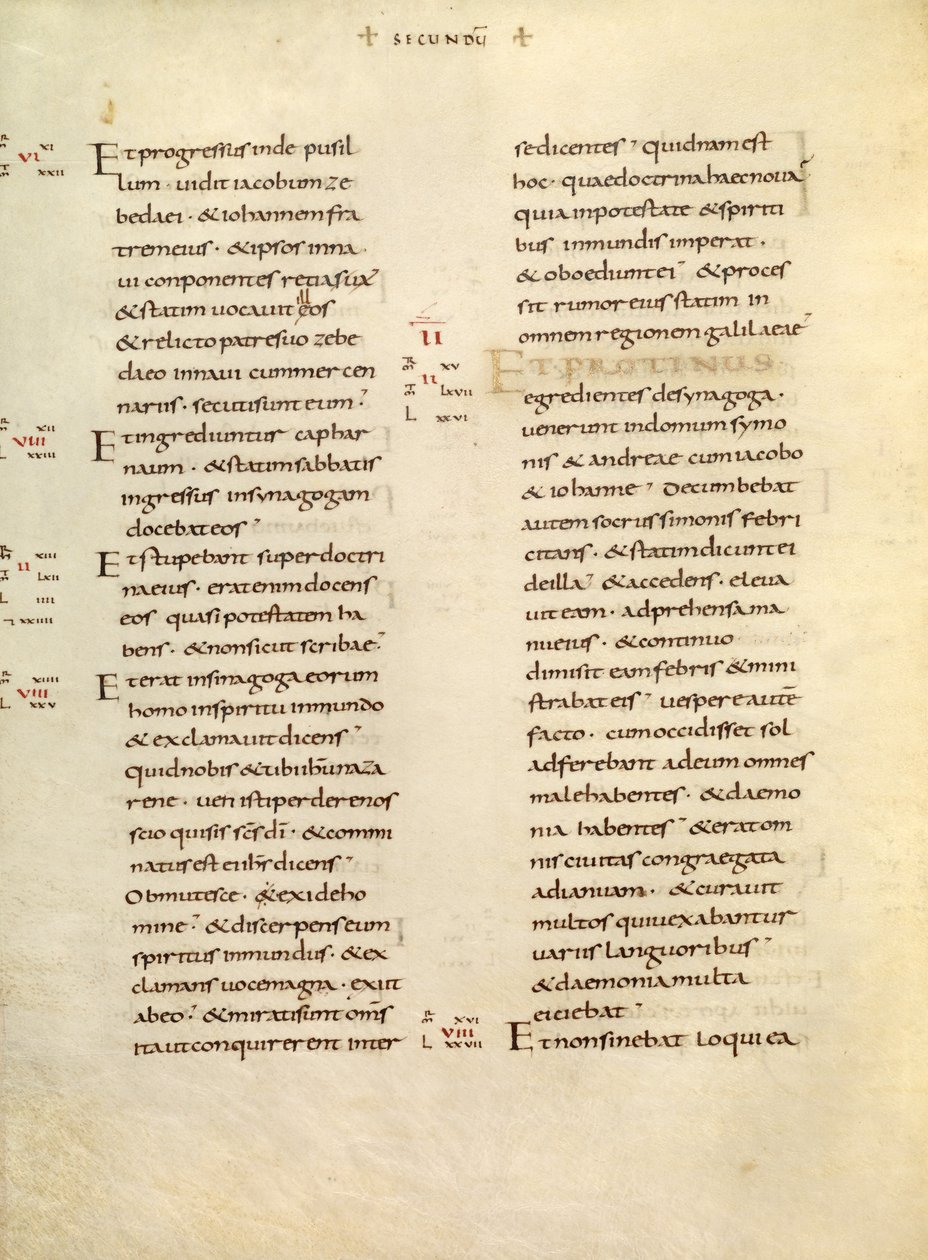 + SECUNDŪ +
R XI
VI
M XXII
Et progressus inde pusil
lum · uidit iacobum ze
bedaei · & iohannem fra
trem eius · & ipsos in na
ui conponentes retia sua
& statim uocauit eos
& relicto patre suo zebe
daeo in naui cum mercen
nariis · secuti sunt eum
R XII
VIII
L XXIII
Et ingrediuntur caphar
naum · & statim sabbatis
ingressus in synagogam
docebat eos
R XIII
II
M LXII
L IIII
XXIIII
Et stupebant super doctri
na eius · erat enim docens
eos quasi potestatem ha
bens · & non sicut scribae
R XIIII
VIII
L XXV
Et erat in sinagoga eorum
homo in spiritu inmundo
& exclamauit dicens
Quid nobis & tibi ihu naza
rene · uenisti perdere nos
scio qui sis scs di · & commi
natus est ei ihs dicens
Obmutesce · & exi de ho
mine · & discerpens eum
spiritus inmundus · & ex
clamans uoce magna · exiit
ab eo · & mirati sunt oms
ita ut conquirerent inter
se dicentes quidnam est
hoc · quae doctrina haec noua
quia in potestate & spiriti
bus inmundis imperat ·
& oboediunt ei & proces
sit rumor eius statim in
omnem regionem galilaeae
II
R XV
II
M LXVII
L XXVI
ET PROTINUS
egredientes de synagoga ·
uenerunt in domum symo
nis & andreae cum iacobo
& iohanne Decumbebat
autem socrus simonis febri
citans · & statim dicunt ei
de illa & accedens · eleua
uit eam · adprehensa ma
nu eius · & continuo
dimisit eam febris & mini
strabat eis uespere autē
facto · cum occidisset sol
adferebant ad eum omnes
male habentes · & daemo
nia habentes & erat om
nis ciuitas congraegata
ad ianuam · & curauit
multos qui uexabantur
variis languoribus
& daemonia multa
eiciebat
R XVI
VIII
L XXVII
Et non sinebat loqui ea